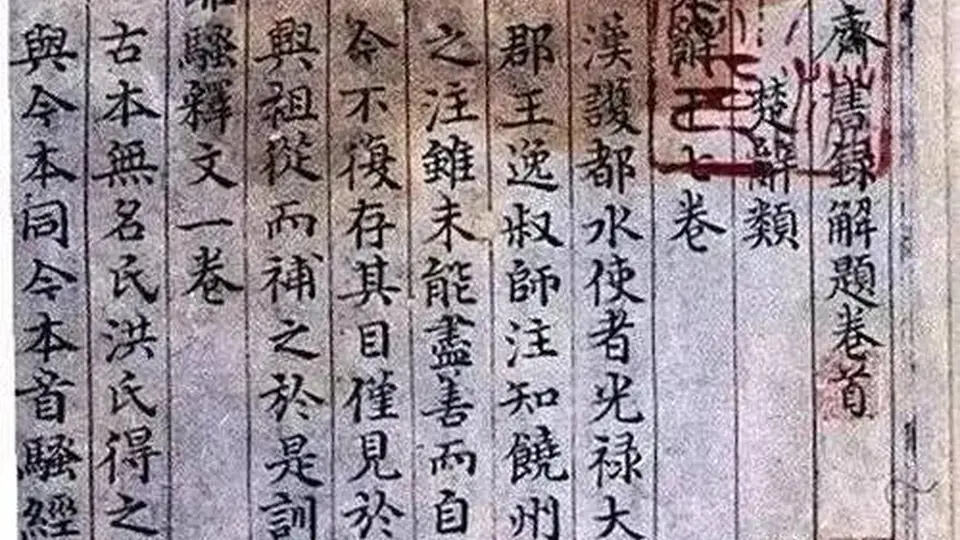 齋書録解題卷首
楚辭類
辭十七卷
漢護都水使者光禄大
郡王逸叔師注知饒州
之注雖未能盡善而自
今不復存其目僅見於
興祖從而補之於是訓
騷釋文一卷
古本無名氏洪氏得之
與今本同今本首騷經